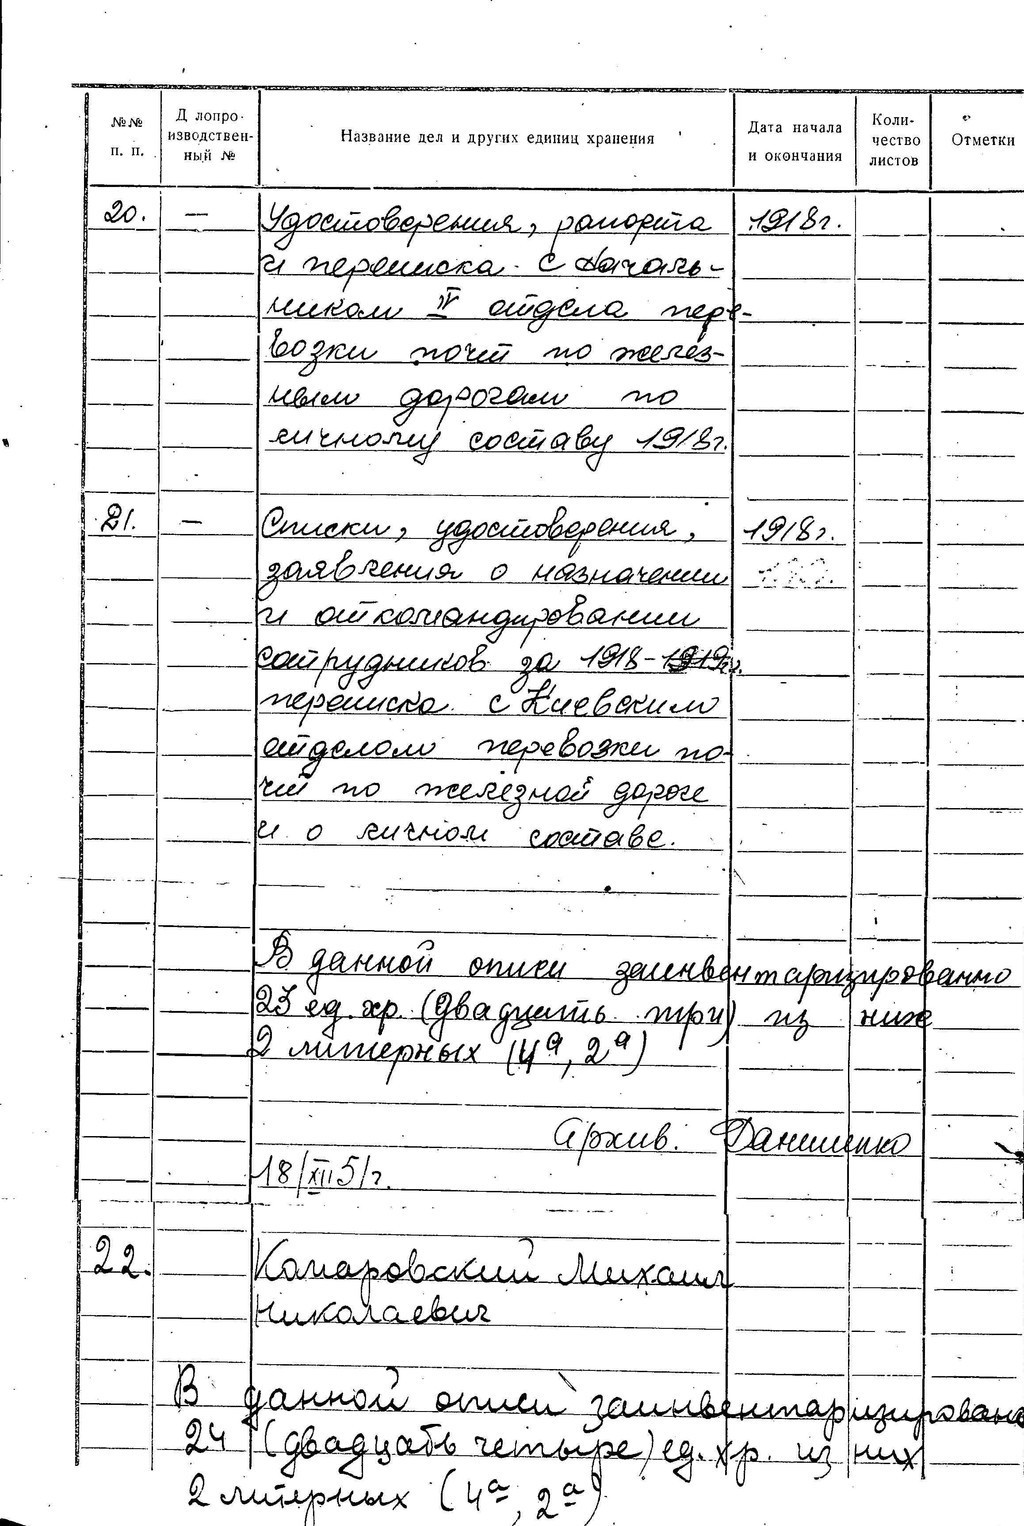 №№ п. п.
Д лопро-
изводствен-
ный №
Название дел и других единиц хранения
Дата начала
и окончания
Коли-
чество
листов
Отметки
20. — Удостоверения, рапорта 1918г.
и переписка с началь-
ником IV отдела пере-
возки почт по желез-
ным дорогам по
личному составу 1918г.
21. — Списки, удостоверения, 1918г.
заявления о назначении
и откомандировании
сотрудников за 1918-1919гг.
переписка с Киевским
отделом перевозки по-
чт по железной дороге
и о личном составе.
В данной описи заинвентаризированно
23 ед. хр. (двадцать три) из них
2 литерных (4а, 2а)
Архив. Даниленко
18/XII 51г.
22. Комаровский Михаил
Николаевич
В данной описи заинвентаризировано
24 (двадцать четыре) ед. хр. из них
2 литерных (4а, 2а)